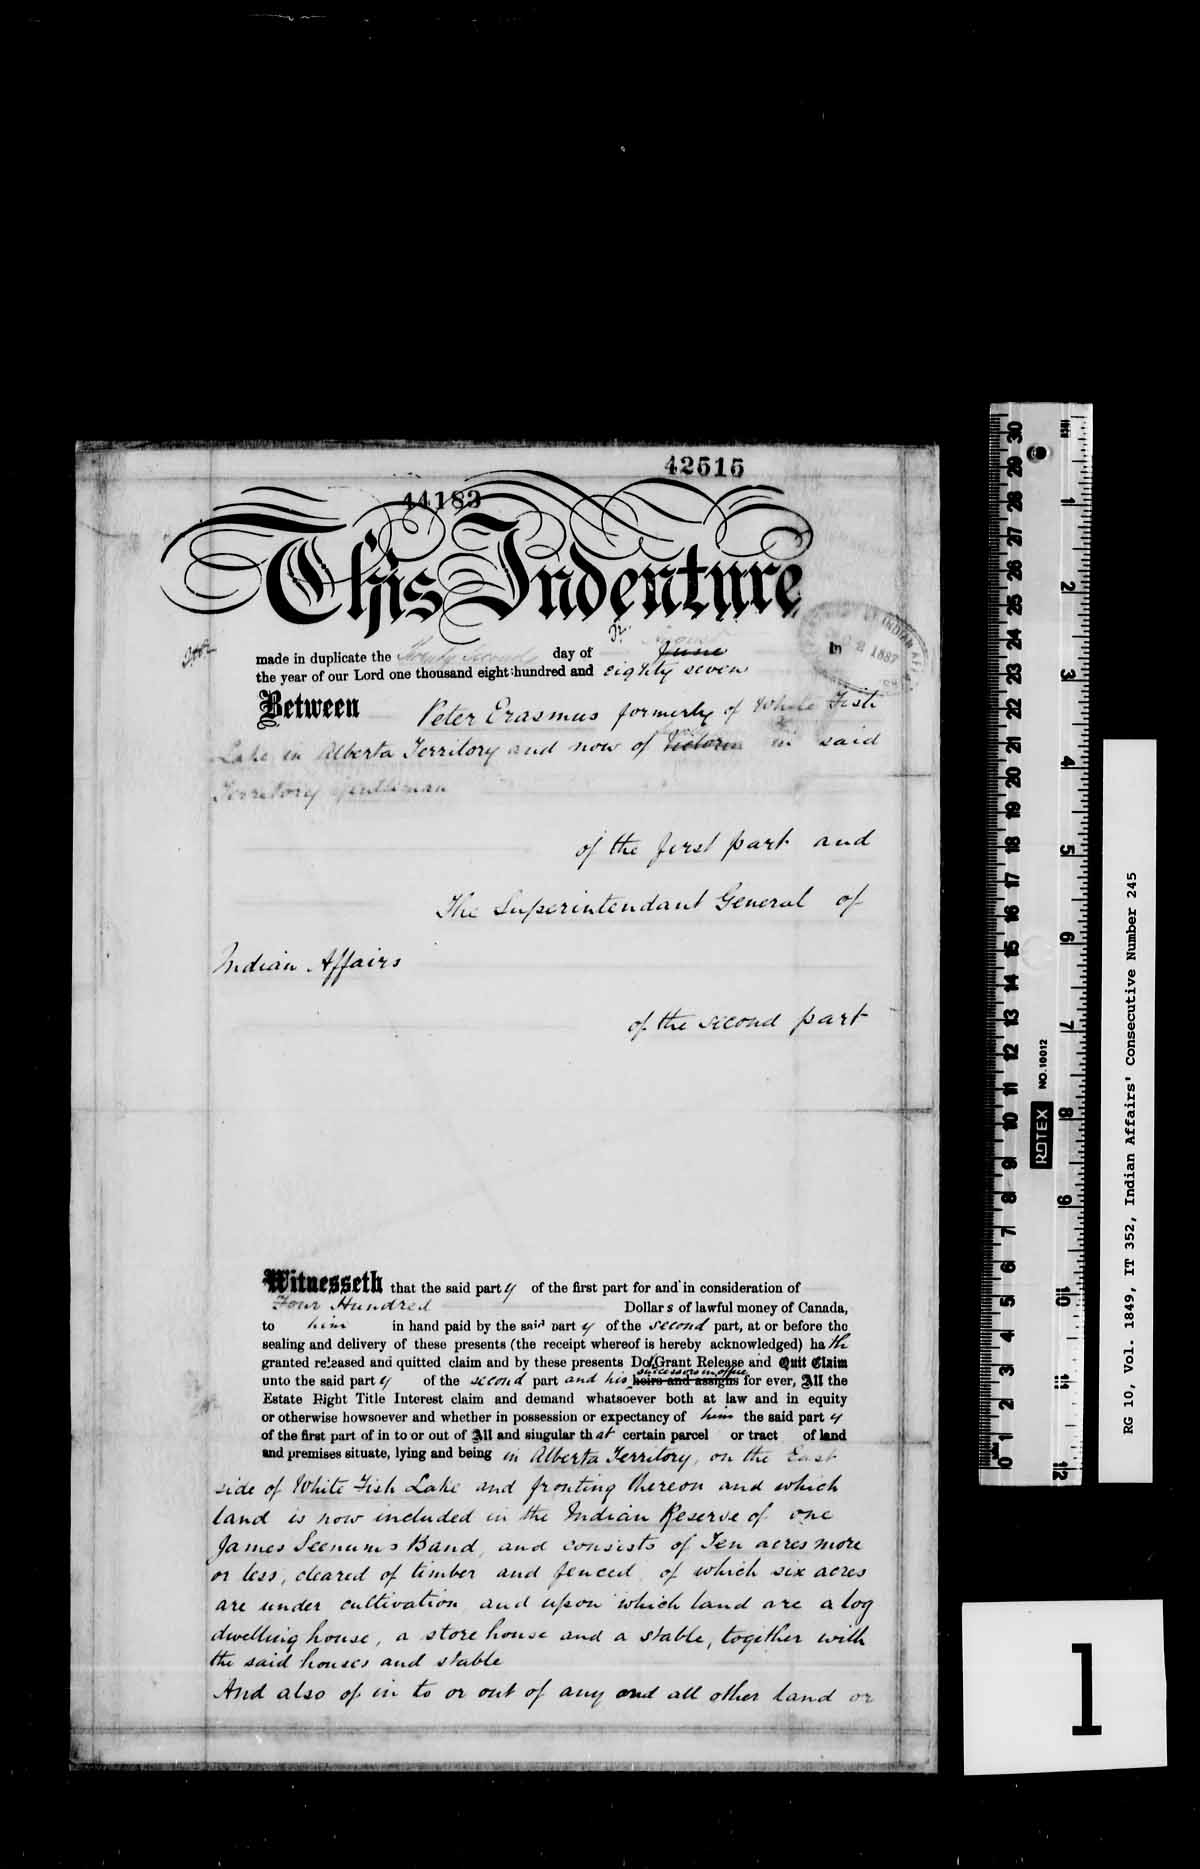 42515
44183
This Indenture
made in duplicate the Twenty Second day of August June in
the year of our Lord one thousand eight hundred and eighty seven
Between Peter Erasmus formerly of White Fish
Lake in Alberta Territory and now of Victoria in said
Territory Gentleman
of the first part and
The Superintendant General of
Indian Affairs
of the second part
Witnesseth that the said party of the first part for and in consideration of
Four Hundred Dollars of lawful money of Canada,
to him in hand paid by the said party of the second part, at or before the
sealing and delivery of these presents (the receipt whereof is hereby acknowledged) hath
granted released and quitted claim and by these presents Doth Grant Release and Quit Claim
unto the said party of the second part and his successors in office heirs and assigns for ever, All the
Estate Right Title Interest claim and demand whatsoever both at law and in equity
or otherwise howsoever and whether in possession or expectancy of him the said party
of the first part of in to or out of All and singular that certain parcel or tract of land
and premises situate, lying and being in Alberta Territory, on the East
side of White Fish Lake and fronting thereon and which
land is now included in the Indian Reserve of one
James Seenums Band, and consists of Ten acres more
or less, cleared of timber and fenced, of which six acres
are under cultivation and upon which land are a log
dwelling house, a store house and a stable, together with
the said houses and stable
And also of in to or out of any and all other land or
RG 10, Vol. 1849, IT 352, Indian Affairs' Consecutive Number 245
ROTEX NO. 10012
1